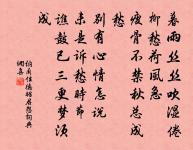 暮雨丝丝吹湿倦
柳愁荷风急
瘦骨不禁秋总成
愁
别有心情怎说
未是诉愁时节
谯鼓已三更梦须
成
纳兰性德昭君怨